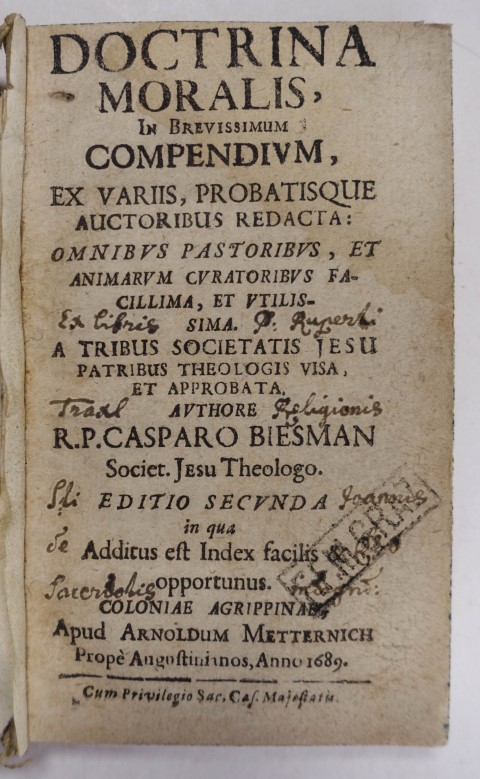 DOCTRINA
MORALIS,
IN BREVISSIMUM
COMPENDIVM,
EX VARIIS, PROBATISQUE
AUCTORIBUS REDACTA:
OMNIBVS PASTORIBVS, ET
ANIMARVM CVRATORIBVS FA-
CILLIMA, ET VTILIS-
Ex libris SIMA. P. Ruperti
A TRIBUS SOCIETATIS JESU
PATRIBUS THEOLOGIS VISA,
ET APPROBATA,
AVTHORE Religionis
R.P. CASPARO BIESMAN
Societ. Jesu Theologo.
EDITIO SECVNDA Joannis
in qua
de Additus est Index facilis
Sacerdotis opportunus.
COLONIAE AGRIPPINAE,
Apud ARNOLDUM METTERNICH
Propè Augustinianos, Anno 1689.
Cum Privilegio Sac. Cæs. Majestatis.